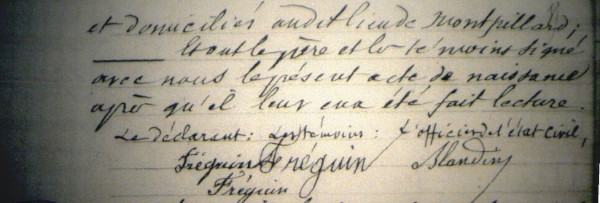 et domiciliés audit lieu de Montpillard;
Et ont le père et les témoins signé
avec nous le présent acte de naissance
après qu'il leur en a été fait lecture.
Le déclarant: Les témoins: L'officier de l'état Civil,
Fréguin Fréguin Blandin
Fréguin